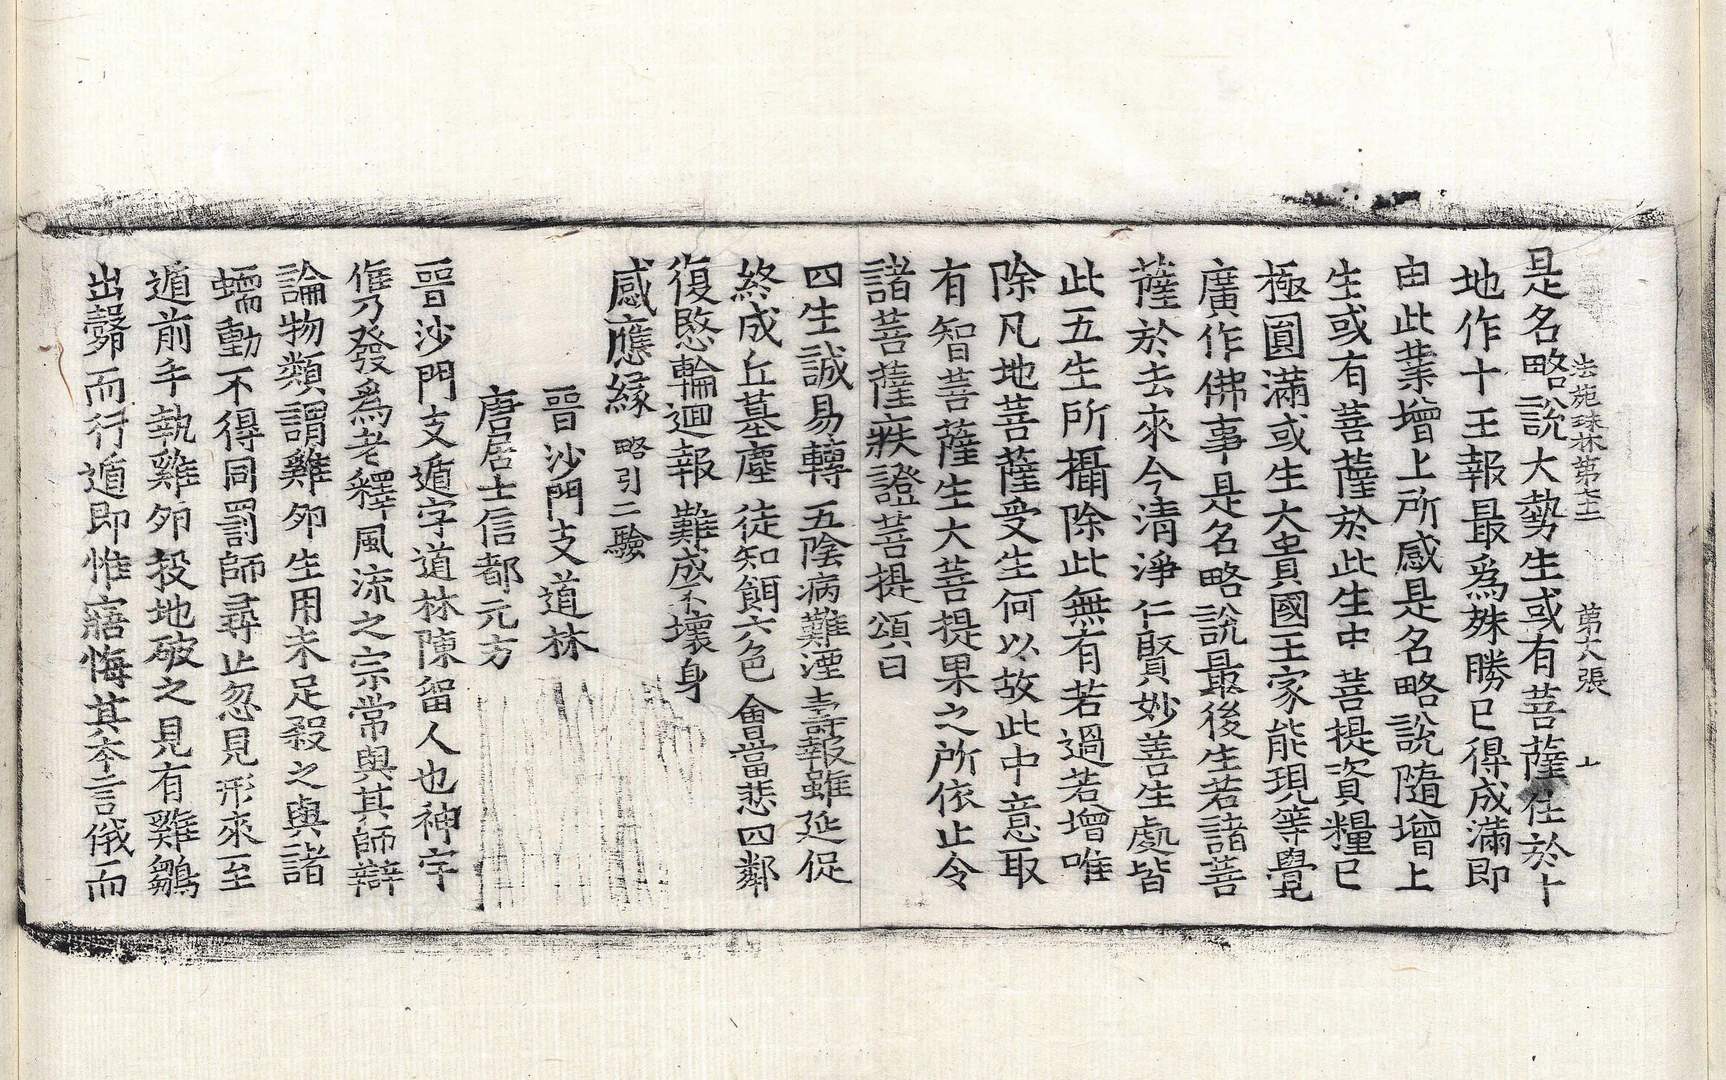 法苑珠林第七十二 第六張 七
是名略說大勢生或有菩薩住於十
地作十王報最爲殊勝已得成滿即
由此業增上所感是名略說隨增上
生或有菩薩於此生中菩提資糧已
極圓滿或生大貴國王家能現等覺
廣作佛事是名略說最後生若諸菩
薩於去來今清淨仁賢妙善生處皆
此五生所攝除此無有若過若增唯
除凡地菩薩受生何以故此中意取
有智菩薩生大菩提果之所依止令
諸菩薩疾證菩提頌曰
四生誠易轉 五陰病難湮 壽報雖延促
終成丘墓塵 徒知餌六色 會當悲四鄰
復愍輪迴報 難成不壞身
感應緣 略引二驗
晉沙門支道林
唐居士信都元方
晉沙門支遁字道林陳留人也神宇
儁乃發爲老釋風流之宗常與其師辯
論物類謂雞夘生用未足殺之與諸
蠕動不得同罰師尋止忽見形來至
遁前手執雞夘投地破之見有雞鶵
出鷇而行遁即惟寤悔其本言俄而